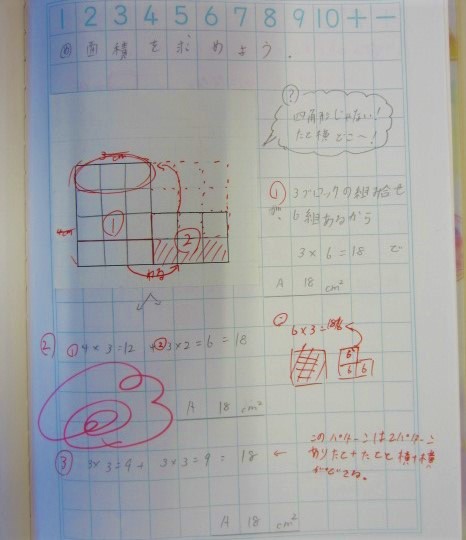 1 2 3 4 5 6 7 8 9 10 + −
面積を求めよう。
?
四角形じゃない!
たて横どこ〜!
3cm
4cm
①
②
① 3ブロックの組合せ
6組あるから
3×6=18 で
A 18 cm²
6×3=18
6
6 6
② ① 4×3=12 ② 3×2=6 =18
A 18 cm²
③ 3×3=9+ 3×3=9 = 18 ←
このパターンは2パターン
ありたて+たてと横+横
ができるね。
A 18 cm²